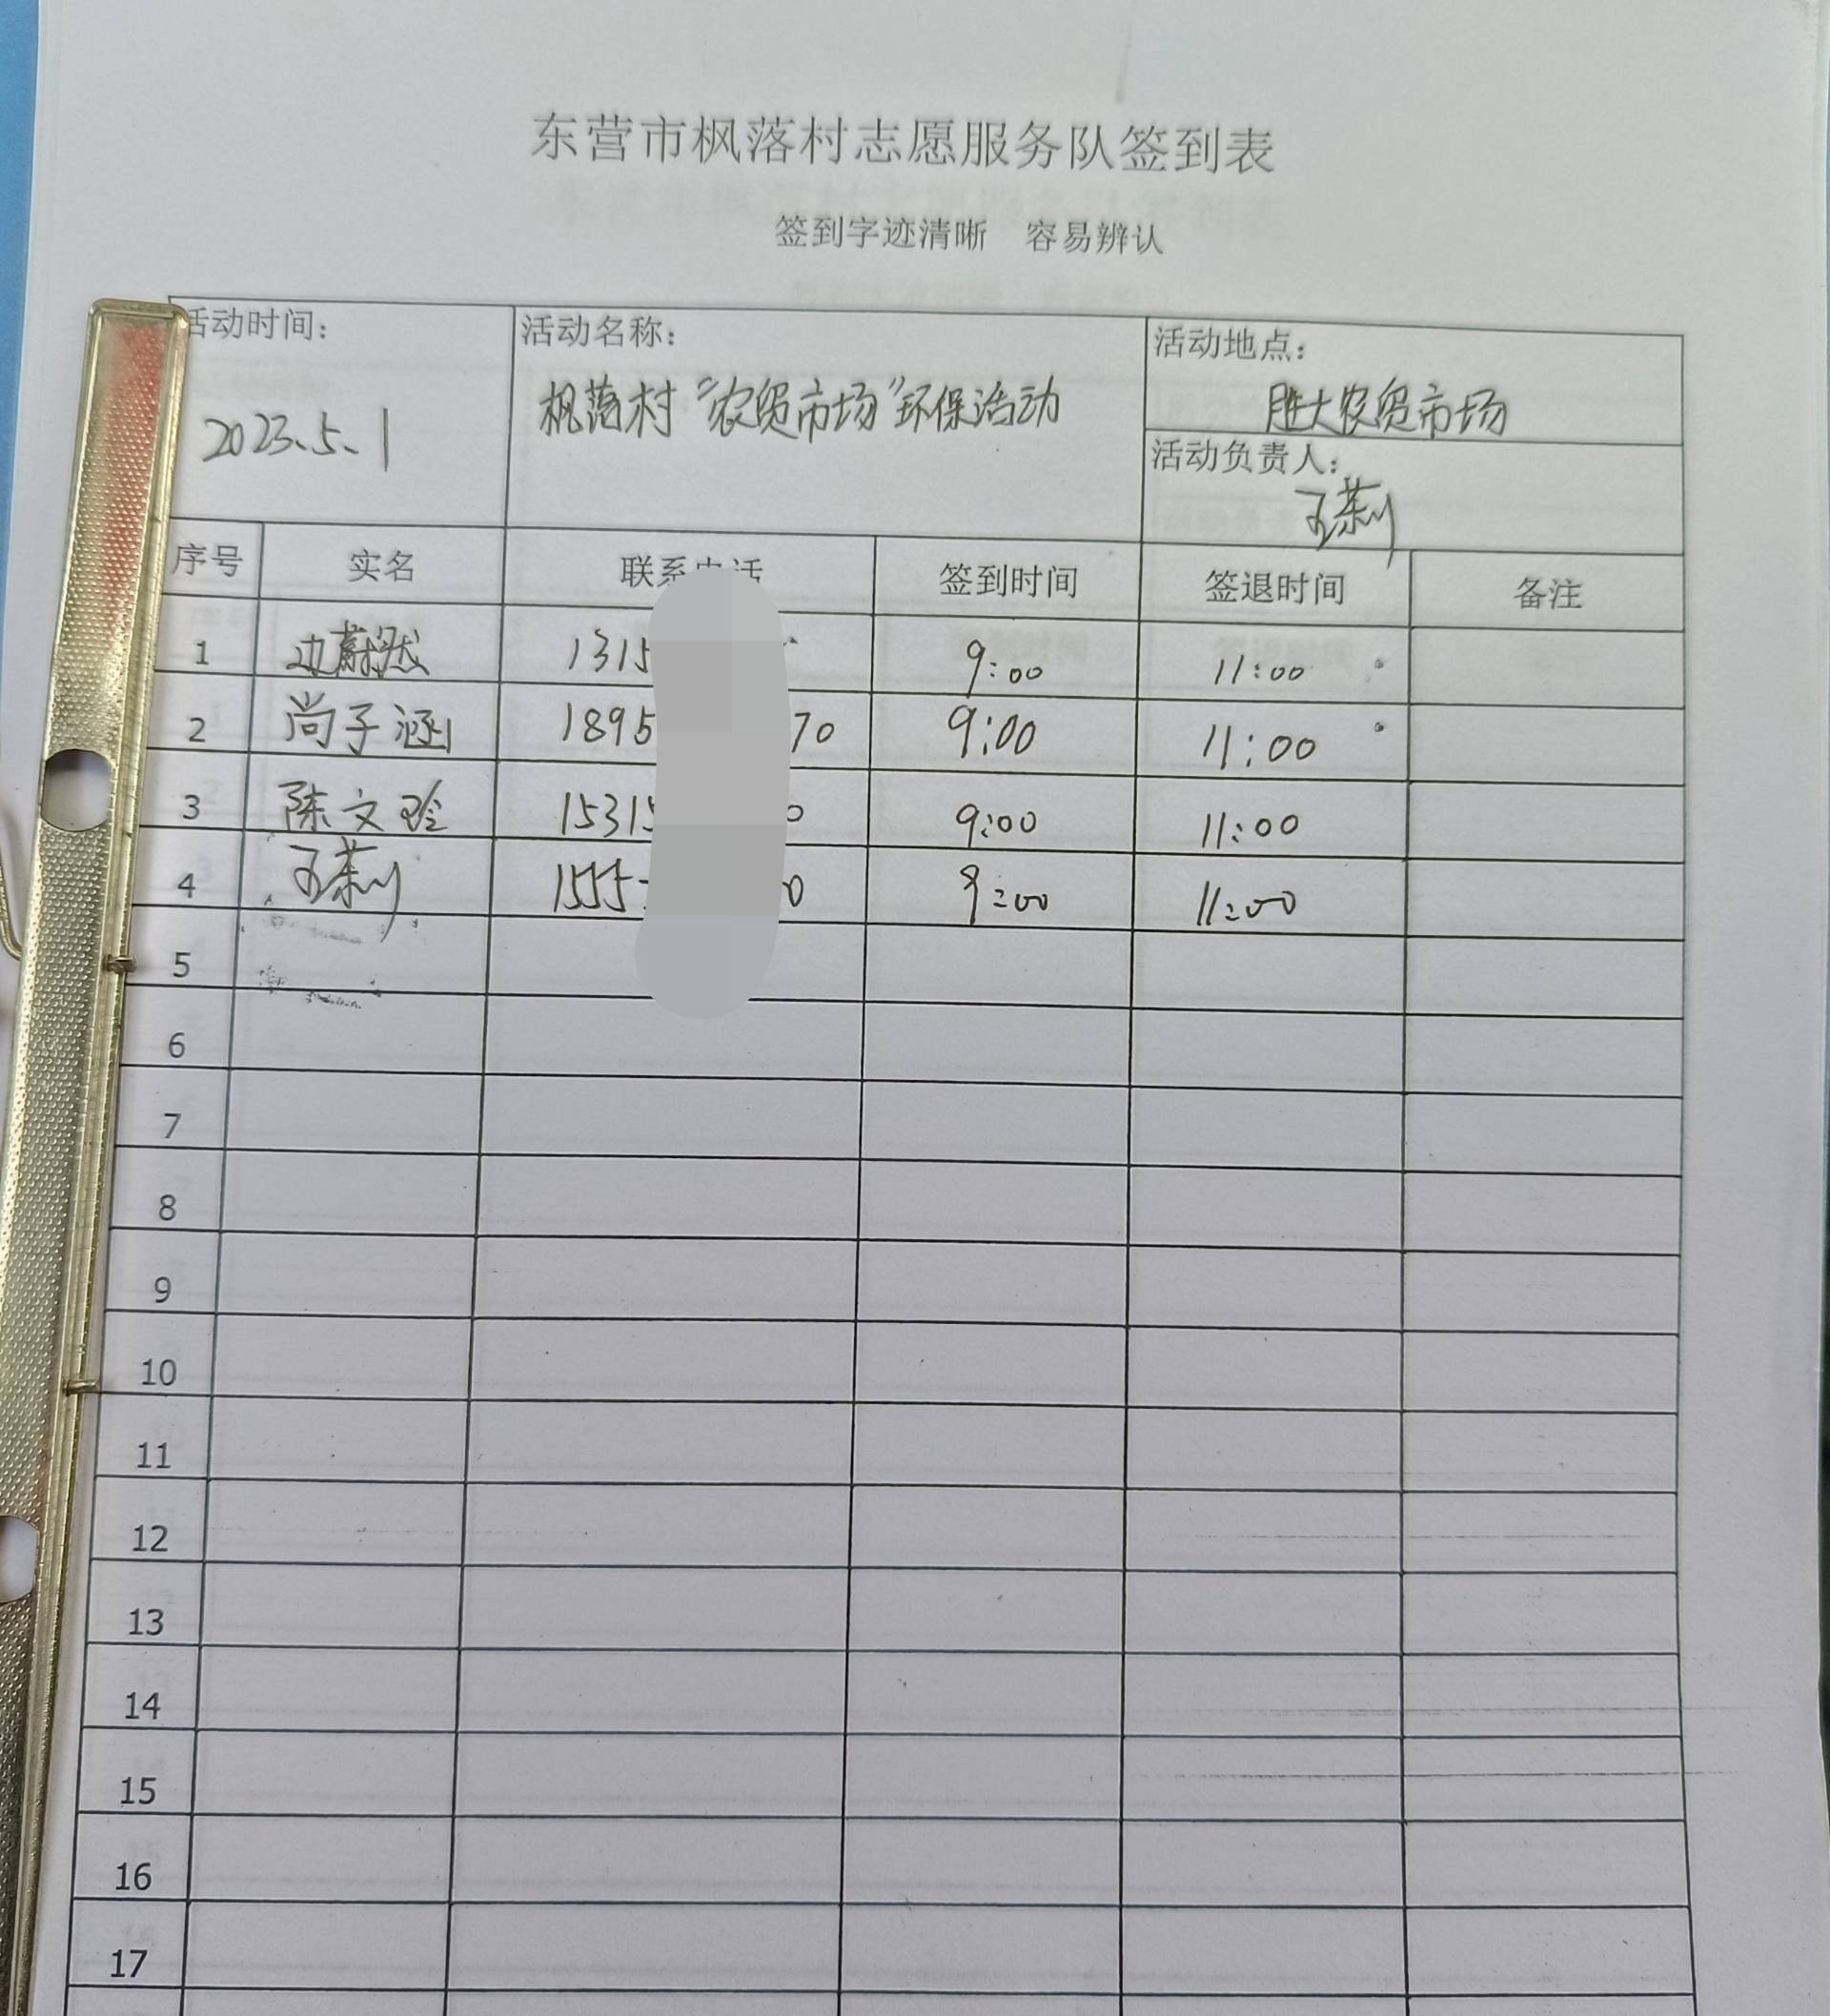 东营市枫落村志愿服务队签到表
签到字迹清晰 容易辨认
活动时间: 活动名称: 活动地点:
2023.5.1 枫落村“农贸市场”环保活动 胜大农贸市场
活动负责人:
王荣川
序号 实名 联系电话 签到时间 签退时间 备注
1 边蔚然 1315 9:00 11:00
2 尚子涵 1895 70 9:00 11:00
3 陈文玲 1531 0 9:00 11:00
4 王荣川 1555 0 9:00 11:00
5
6
7
8
9
10
11
12
13
14
15
16
17